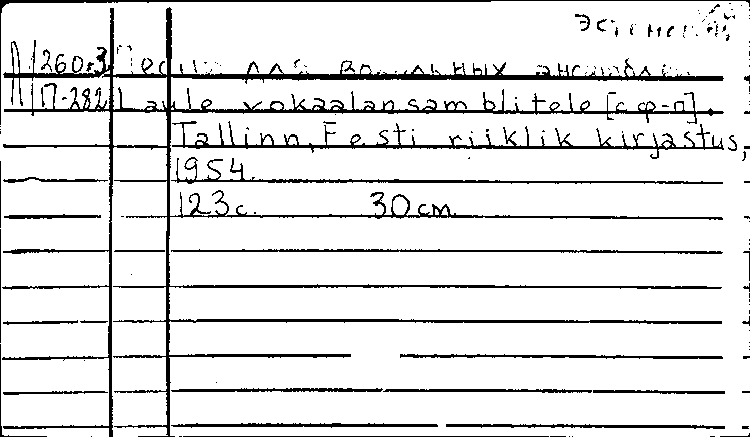 Эстонский
М260.3 Песни для вокальных ансамблей
П-282 Laule vokaalansamblitele [с ф-п].
Tallinn, Eesti riiklik kirjastus,
1954.
123с. 30cm.